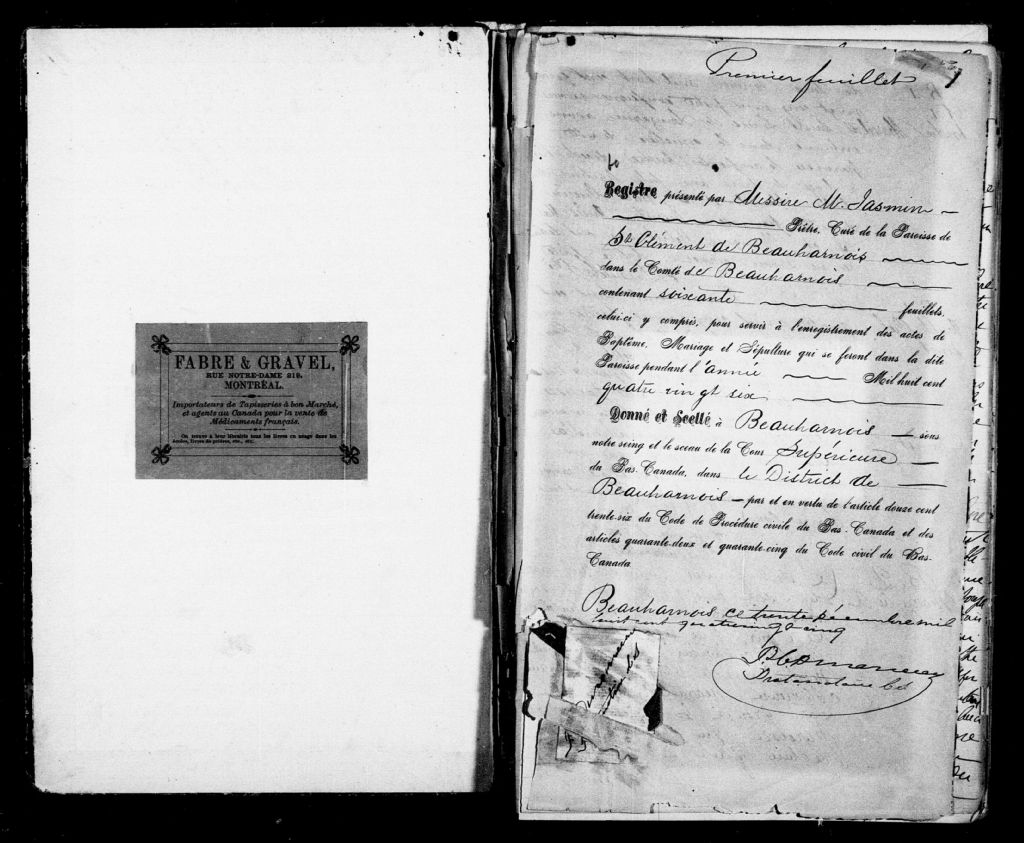 FABRE & GRAVEL,
RUE NOTRE-DAME 219.
MONTRÉAL.
Importateurs de Tapisseries à bon Marché,
et agents au Canada pour la vente de
Médicaments français.
On trouve à leur librairie tous les livres en usage dans les
écoles, livres de prières, etc., etc.
Premier feuillet
Registre présenté par Messire M. Jasmin
Prêtre, Curé de la Paroisse de
St Clément de Beauharnois
dans le Comté de Beauharnois
contenant soixante feuillets,
celui-ci y compris, pour servir à l'enregistrement des actes de
Baptême, Mariage et Sépulture qui se feront dans la dite
Paroisse pendant l'année Mil huit cent
quatre vingt six
Donné et Scellé à Beauharnois sous
notre seing et le sceau de la Cour Supérieure
du Bas-Canada, dans le District de
Beauharnois par et en vertu de l'article douze cent
trente-six du Code de Procédure civile du Bas-Canada et des
articles quarante-deux et quarante-cinq du Code civil du Bas-
Canada
Beauharnois ce trente décembre mil
huit cent quatre vingt cinq